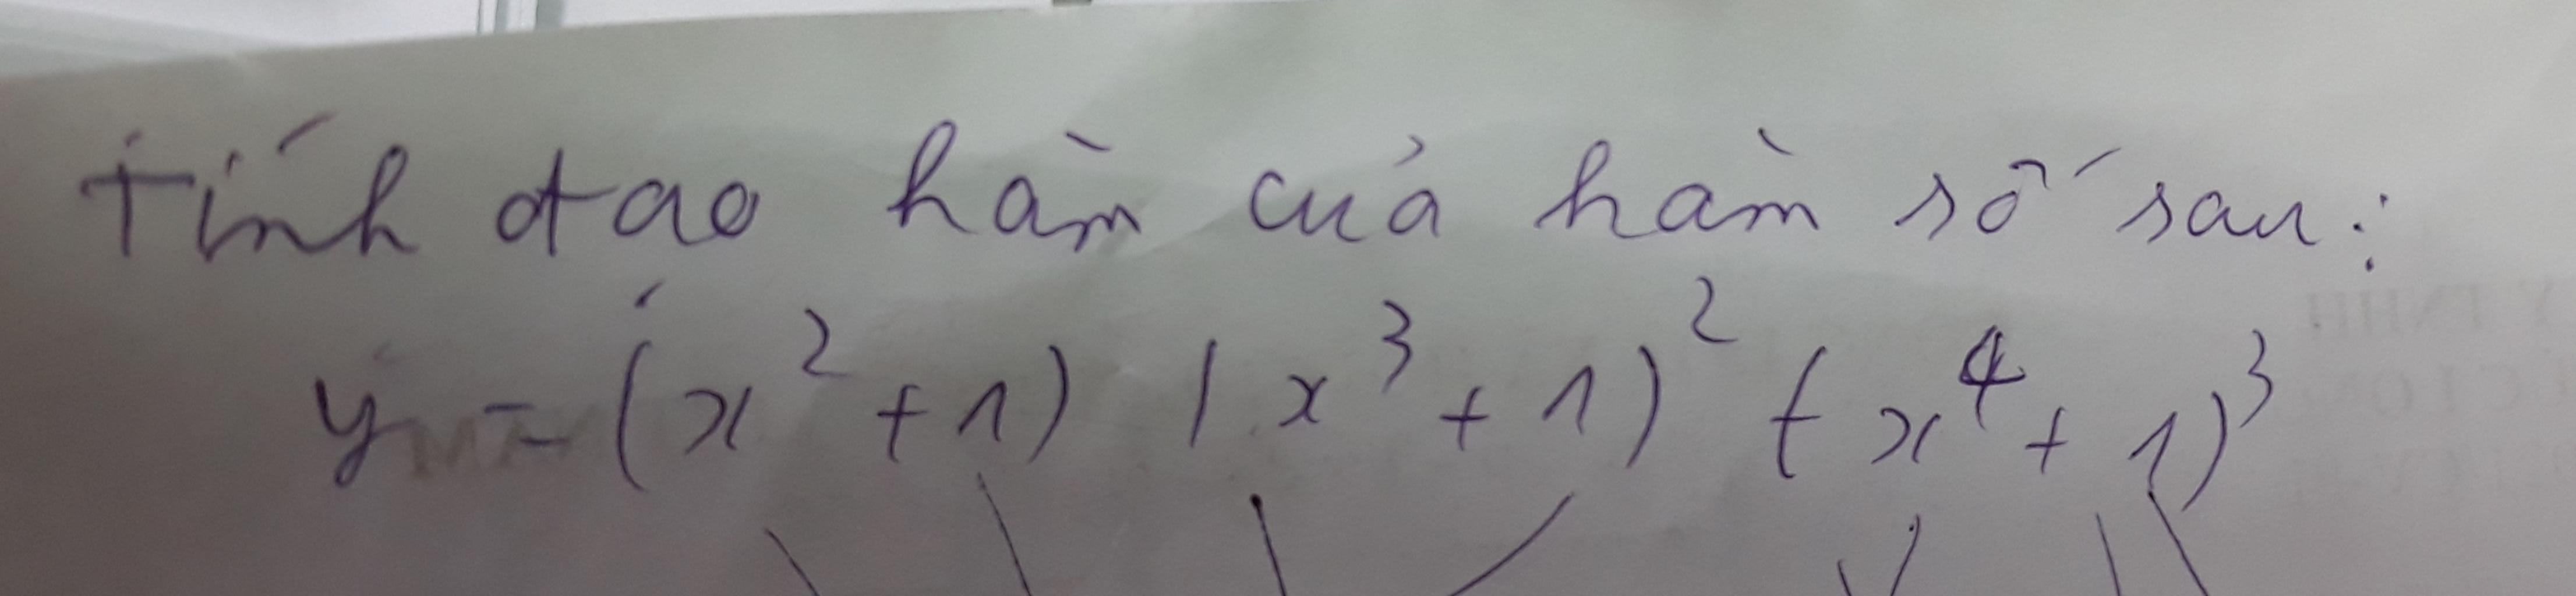 Tính đạo hàm của hàm số sau:
y = (x² + 1) (x³ + 1)² (x⁴ + 1)³